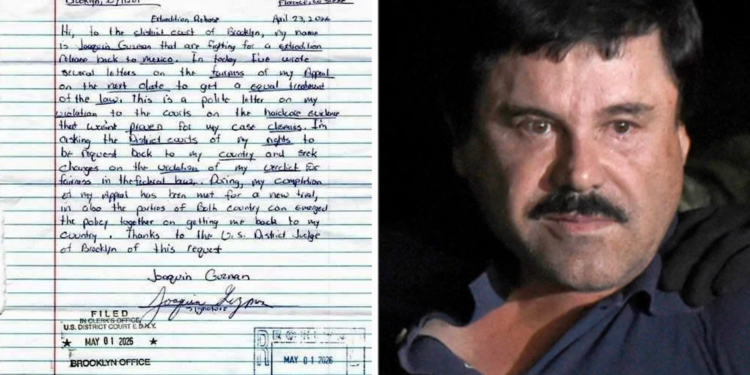 Extradition Release April 23, 2026
Hi, to the district court of Brooklyn, my name
is Joaquin Guzman that are fighting for a extradition
release back to mexico. In today I've wrote
several letters on the fairness of my Appeal
on the next date to get a equal treatment
of the law. This is a polite letter on my
violation to the courts on the hardcore evidence
that wasn't proven for my case closings. I'm
asking the District courts of my rights to
be request back to my country and seek
changes on the violation of my verdict for
fairness in the federal law. my completion
of my Appeal has been met for a new trial,
in also the parties of Both country can
the policy together on getting me back to my
country. Thanks to the U.S. District Judge
of Brooklyn of this request
Joaquin Guzman
Signature
FILED
IN CLERK'S OFFICE
U.S. DISTRICT COURT E.D.N.Y.
★ MAY 01 2026 ★
BROOKLYN OFFICE
MAY 01 2026